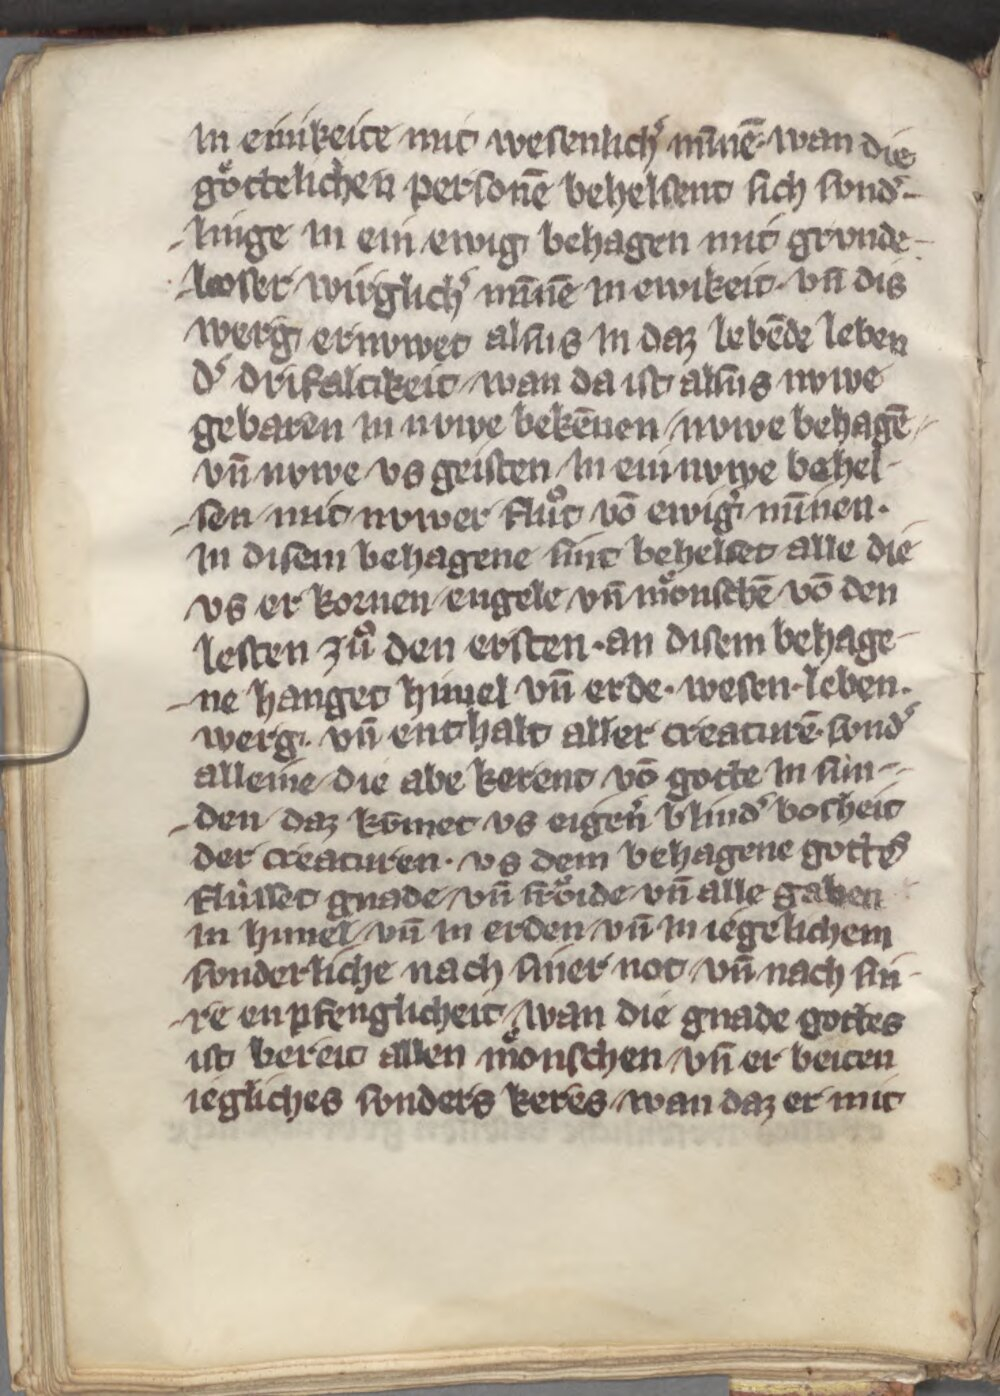 in einikeite mit wesenlichˀ minnē· wan die
goͤttelichen personē behelsent sich sundˀ-
linge in ein ewig behagen mit grvnde-
loser wirglichˀ minnē in ewikeit· vn̄ dis
werg ernvwet alsus in daz lebēde leben
dˀ drifaltikeit wan da ist alsus nvwe
gebaren in nvwe bekēnen / nvwe behagē /
vn̄ nvwe vs geisten in ein nvwe behel-
sen mit nvwer fluͦt vō ewigˀ minnen·
in disem behagene sint behelset alle die
vs er kornen / engele vn̄ moͤnschē vō den
lesten zuͦ den ersten· an disem behage-
ne hanget himel vn̄ erde· wesen· leben·
werg· vn̄ enthalt aller creaturē· sundˀ
alleine die abe kerent vō gotte in sún-
den daz kv̄met vs eigenˀ blindˀ bosheit
der creaturen· vs dem behagene gottes
flússet gnade vn̄ froͤide vn̄ alle gaben
in himel / vn̄ in erden vn̄ in iegelichem
sunderliche nach siner not vn̄ nach sin-
re enpfenglicheit / wan die gnade gottes
ist bereit allen moͤnschen vn̄ er beiten
iegliches sunders keres wan daz er mit